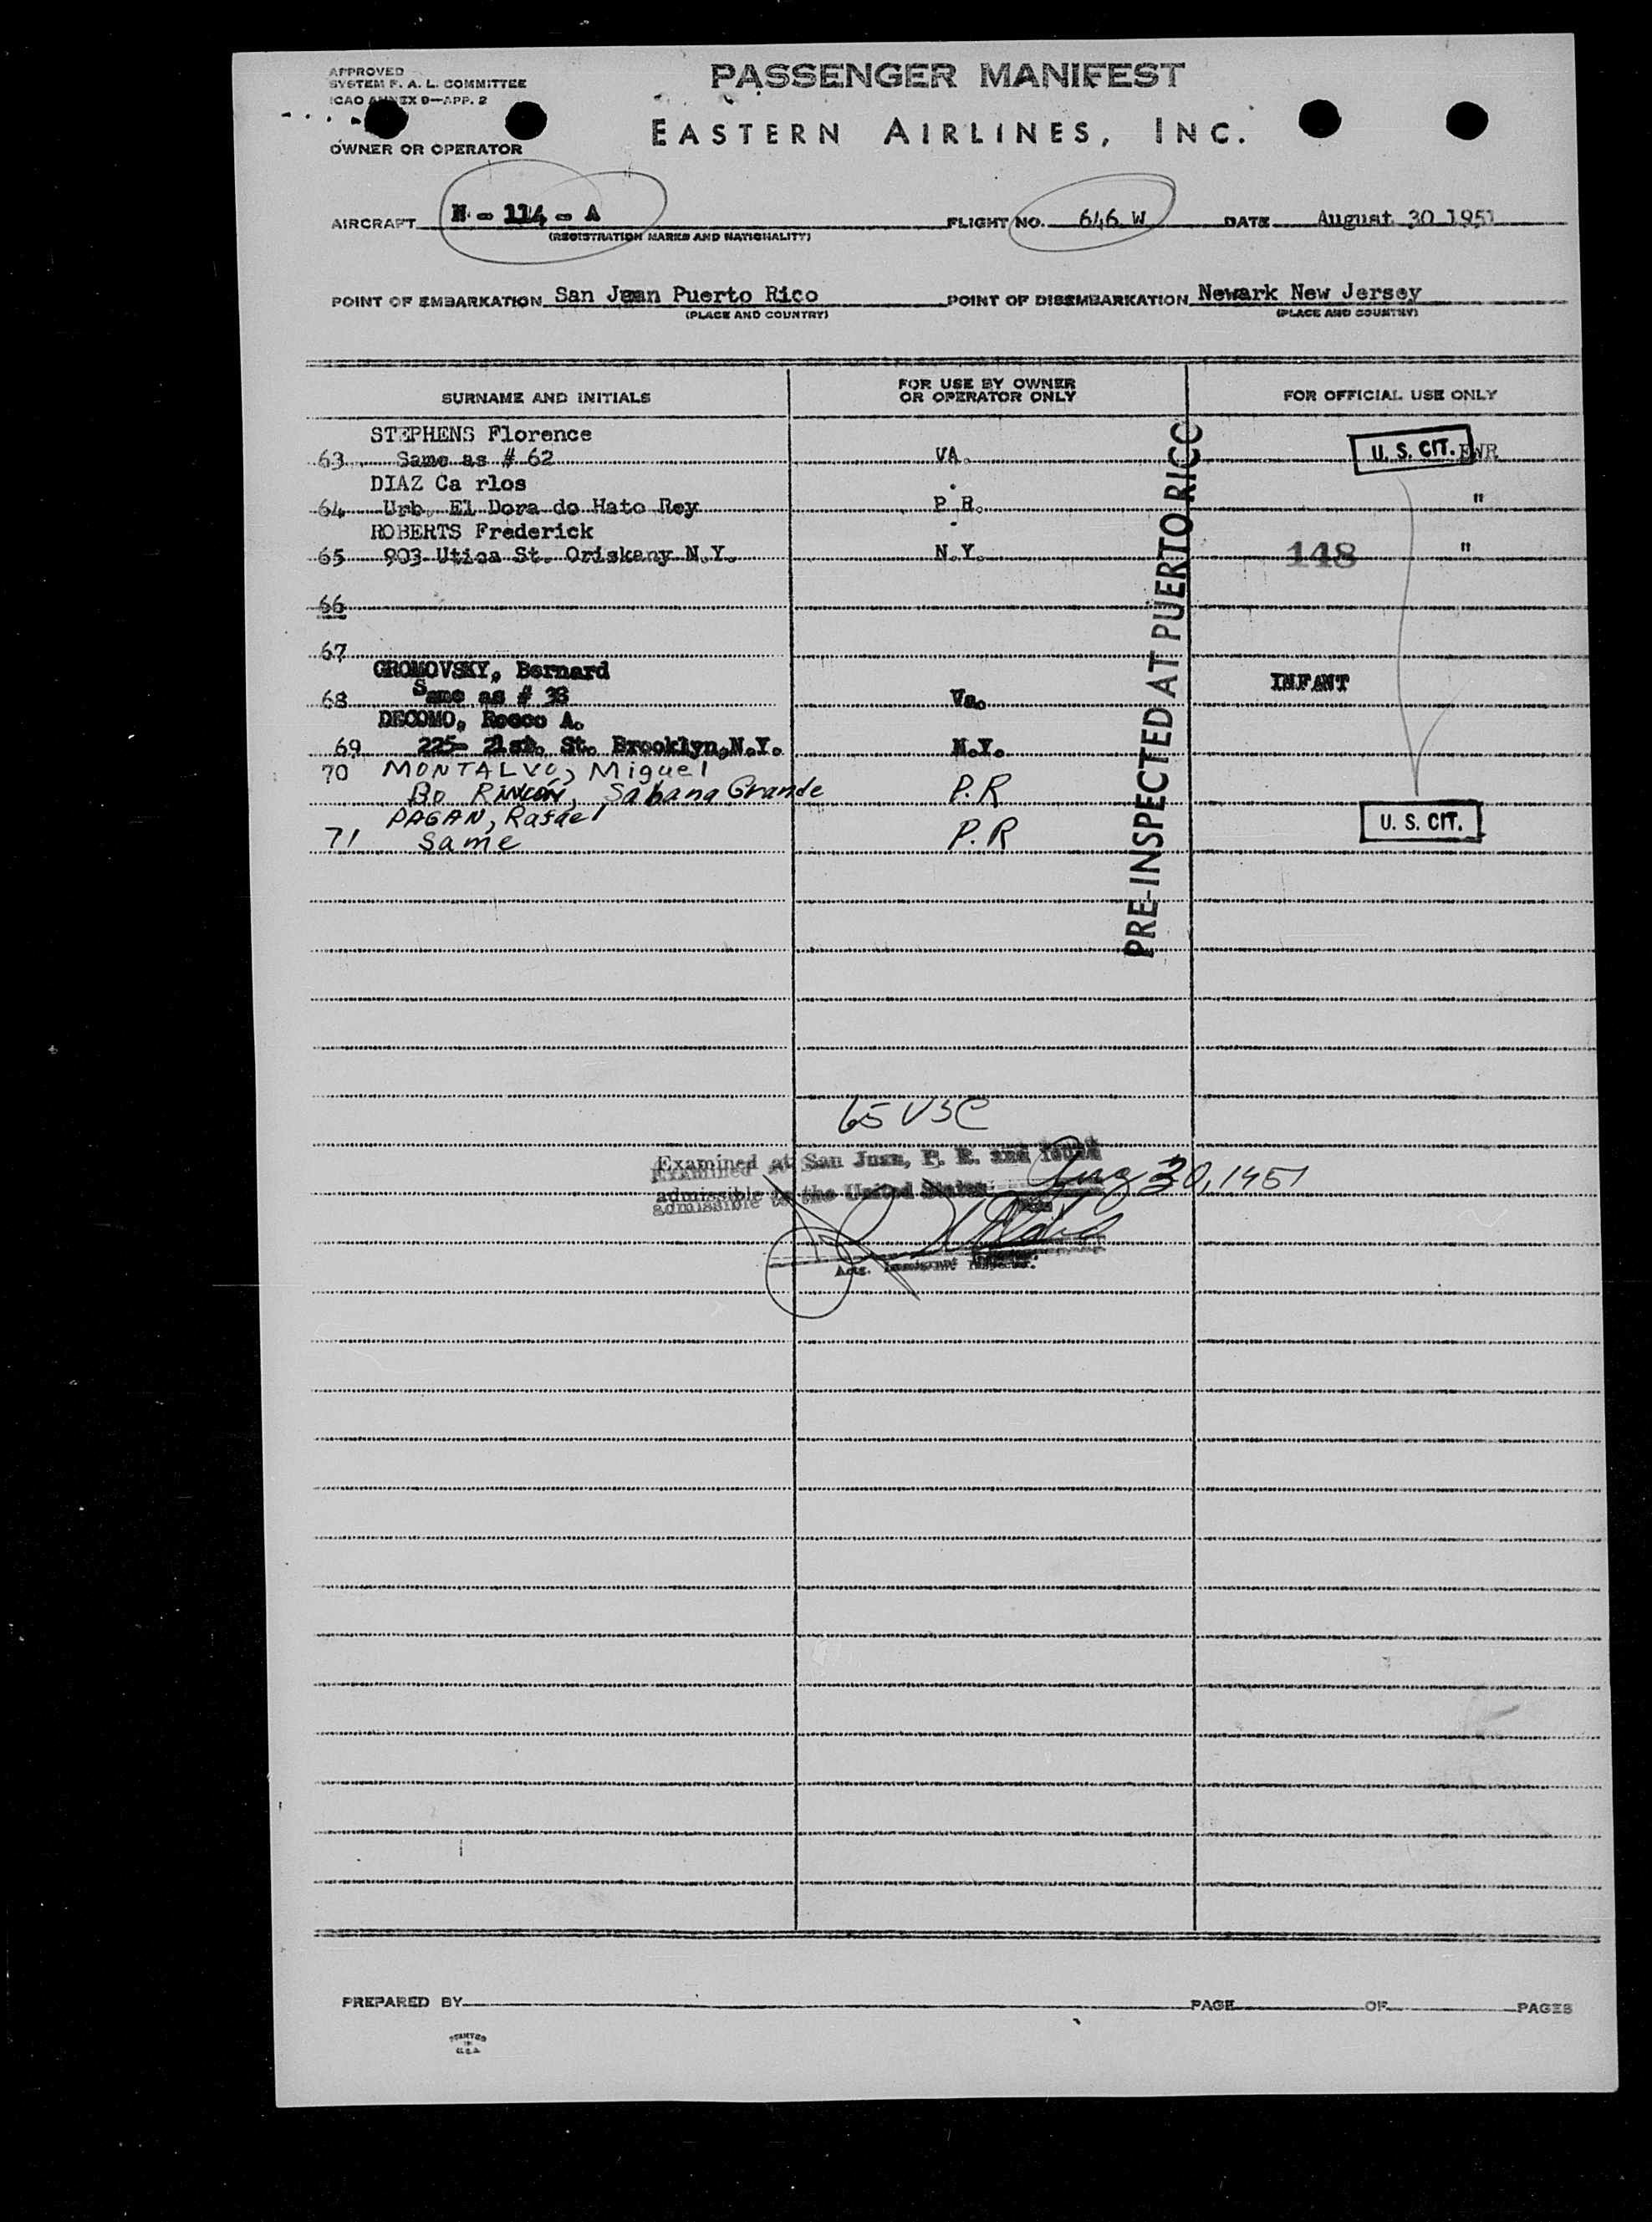 APPROVED
SYSTEM F. A. L. COMMITTEE
ICAO ANNEX 9—APP. 2
OWNER OR OPERATOR
PASSENGER MANIFEST
EASTERN AIRLINES, INC.
AIRCRAFT N - 114 - A FLIGHT NO. 646 W DATE August 30 1951
(REGISTRATION MARKS AND NATIONALITY)
POINT OF EMBARKATION San Juan Puerto Rico POINT OF DISEMBARKATION Newark New Jersey
(PLACE AND COUNTRY) (PLACE AND COUNTRY)
SURNAME AND INITIALS FOR USE BY OWNER OR OPERATOR ONLY FOR OFFICIAL USE ONLY
STEPHENS Florence
63 Same as # 62 VA. U. S. CIT. EWR
DIAZ Ca rlos
64 Urb. El Dora do Hato Rey P R. "
ROBERTS Frederick
65 903 Utica St. Oriskany N.Y. N.Y. 148 "
66
67
GROMOVSKY, Bernard
68 Same as # 38 Va. INFANT
DECOMO, Rocco A.
69 225- 21st. St. Brooklyn,N.Y. N.Y.
70 MONTALVO, Miguel
Bo Rincón, Sabana Grande P.R
PAGAN, Rafael
71 Same P.R U. S. CIT.
PRE-INSPECTED AT PUERTO RICO
65 USC
Examined at San Juan, P. R. and found
admissible to the United States Aug 30, 1951
Actg. Immigrant Inspector.
PREPARED BY PAGE OF PAGES
PRINTED
IN
U.S.A.